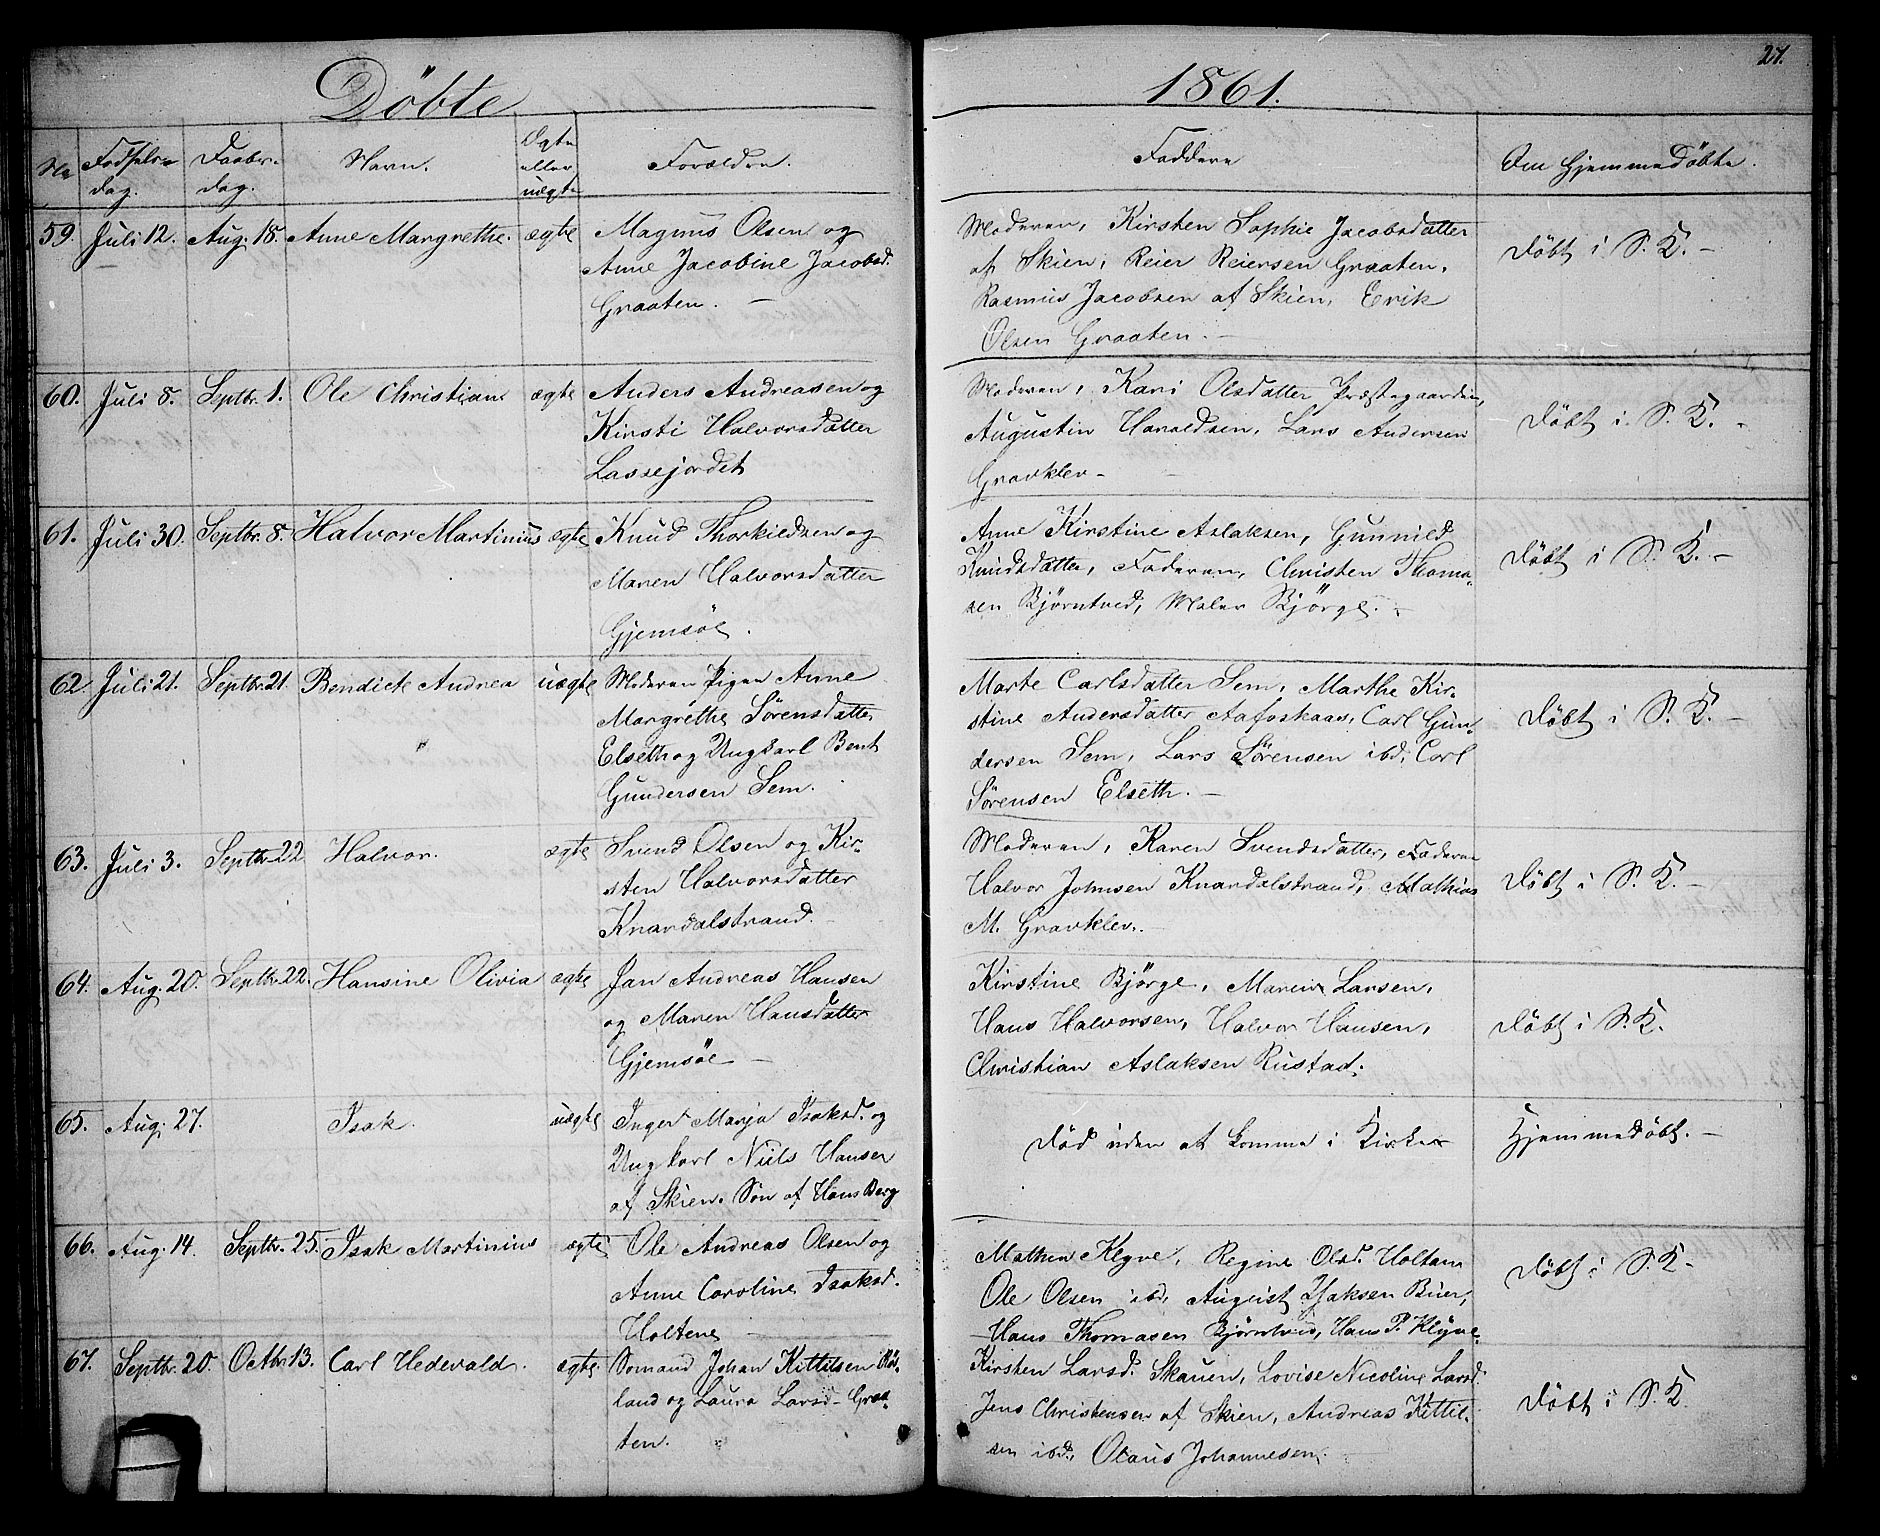 Döbte
1861.
27.
No
Fødsels-
dag.
Daabs-
dag.
Navn.
Ægte
eller
uægte
Forældre.
Faddere
Om Hjemmedöbte.
59.
Juli 12.
Aug. 18.
Anne Margrethe.
ægte
Magnus Olsen og
Anne Jacobine Jacobsd.
Graaten. –
Moderen, Kirsten Sophie Jacobsdatter
af Skien, Reier Reiersen Graaten,
Rasmus Jacobsen af Skien, Erik
Olsen Graaten. –
Döbt i S. K. –
60.
Juli 8.
Septbr. 1.
Ole Christian
ægte
Anders Andreasen og
Kirsti Halvorsdatter
Lassejordet
Moderen, Kari Olsdatter Præstegaarden,
Augustin Haraldsen, Lars Andersen
Gravklev –
Döbt i S. K. –
61.
Juli 30.
Septbr. 8.
Halvor Martinius
ægte
Knud Thorkildsen og
Maren Halvorsdatter
Gjemsöe.
Anne Kirstine Aslaksen, Gunnild
Knudsdatter, Faderen, Christen Thoma-
sen Björntved, Maler Björge. –
Döbt i S. K. –
62.
Juli 21.
Septbr. 21.
Bendick Andrea
uægte
Moderen Pigen Anne
Margrethe Sörensdatter
Elseth og Ungkarl Bent
Gundersen Sem.
Marte Carlsdatter Sem, Marthe Kir-
stine Andersdatter Aafoskaas, Carl Gun-
dersen Sem, Lars Sörensen ibd, Carl
Sörensen Elseth. –
Döbt i S. K. –
63.
Juli 3.
Septbr. 22
Halvor.
ægte
Svend Olsen og Kir-
sten Halvorsdatter
Knardalstrand. –
Moderen, Karen Svendsdatter, Faderen
Halvor Johnsen Knardalstrand, Mathias
M. Gravklev. –
Döbt i S. K. –
64.
Aug. 20.
Septbr. 22.
Hansine Olivia
ægte
Jan Andreas Hansen
og Maren Hansdatter
Gjemsöe –
Kirstine Björge, Maren Larsen,
Hans Halvorsen, Halvor Hansen,
Christian Aslaksen Rustad.
Döbt i S. K.
65.
Aug. 27.
Isak.
uægte
Inger Marja Isaksd. og
Ungkarl Niils Hansen
af Skien. Sön af Hans Berg
Död uden at komme i Kirke
Hjemmedöbt. –
66.
Aug. 14.
Septbr. 25.
Isak Martinius
ægte
Ole Andreas Olsen og
Anne Caroline Isaksd.
Holtene –
Mathea Klyve, Regine Olsd. Holtan
Ole Olsen ibd, August Isaksen Buer,
Hans Thomasen Björntved, Hans P. Klyve.
Döbt i S. K. –
67.
Septbr. 20.
Octbr. 13.
Carl Hedevald.
ægte.
Somand Johan Kittilsen
land og Laura Larsd. Graa-
ten.
Kirsten Larsd. Skauen, Lovise Nicoline Larsd.
Jens Christensen af Skien, Andreas Kittil-
sen ibd, Olaus Johannesen. –
Döbt i S. K.